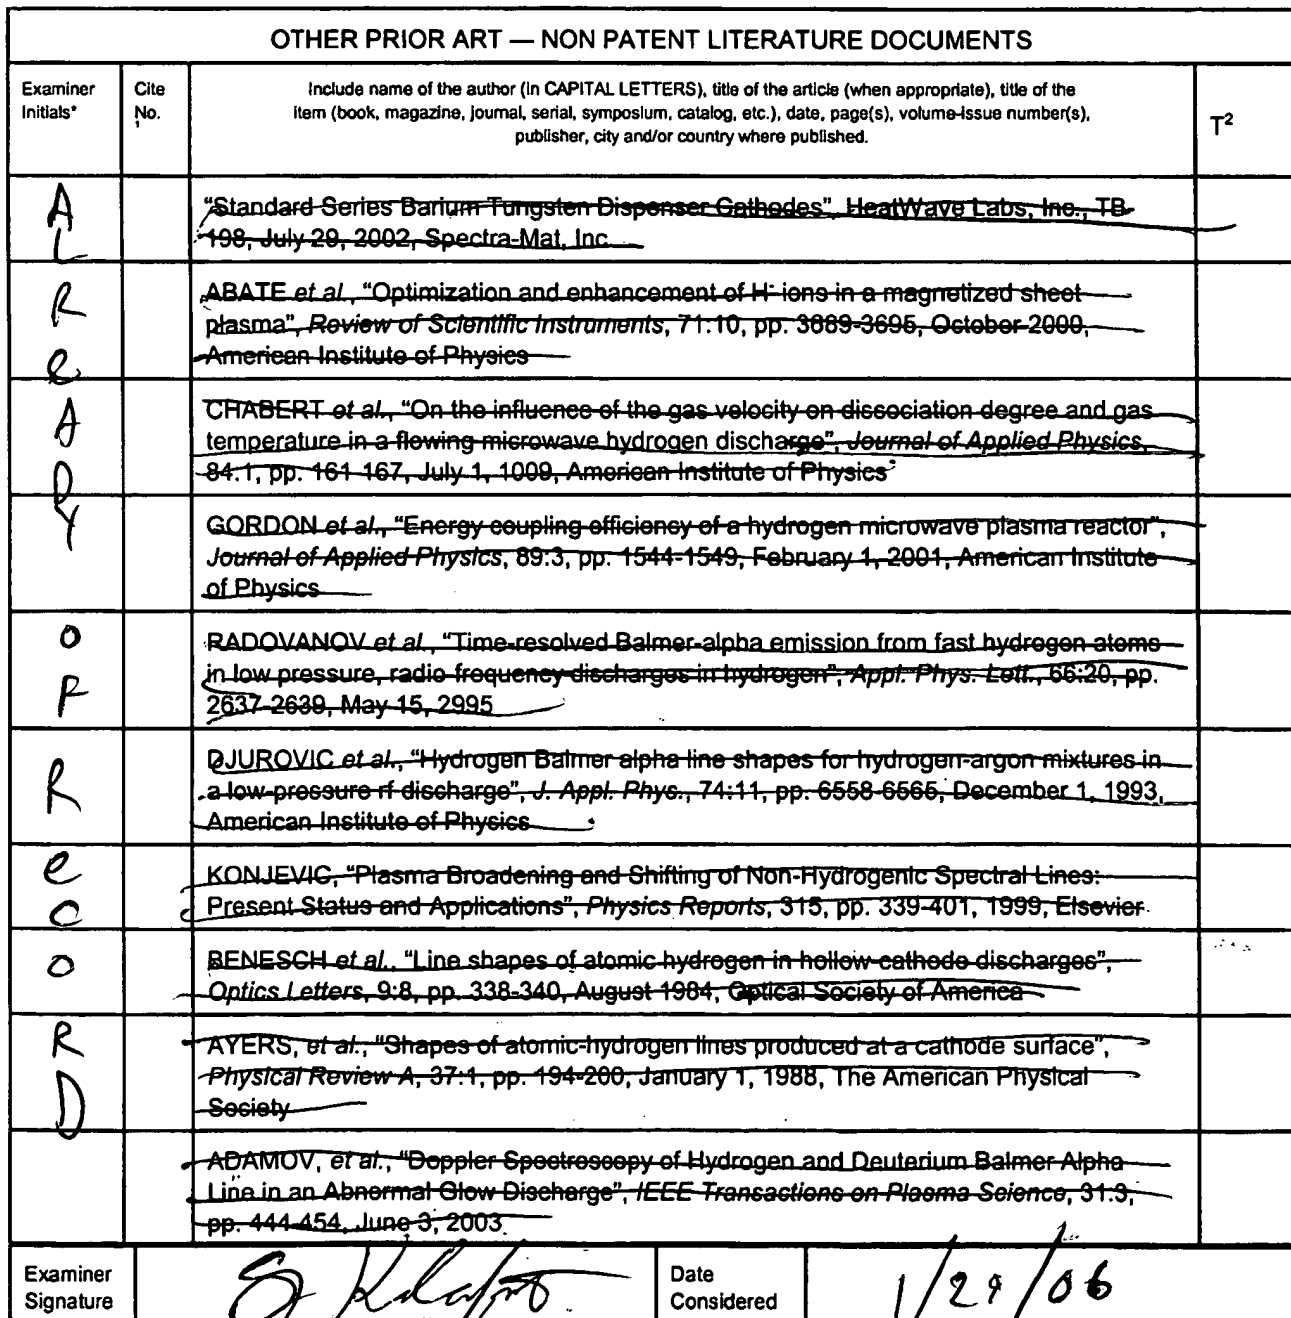 OTHER PRIOR ART — NON PATENT LITERATURE DOCUMENTS
Examiner
Initials*
Cite
No.
1
Include name of the author (in CAPITAL LETTERS), title of the article (when appropriate), title of the
item (book, magazine, journal, serial, symposium, catalog, etc.), date, page(s), volume-issue number(s),
publisher, city and/or country where published.
T²
A
L
R
e
A
D
Y
O
F
R
e
C
O
R
D
"Standard Series Barium Tungsten Dispenser Cathodes", HeatWave Labs, Inc., TB-
198, July 29, 2002, Spectra-Mat, Inc
ABATE et al., "Optimization and enhancement of H⁻ ions in a magnetized sheet
plasma", Review of Scientific Instruments, 71:10, pp. 3689-3695, October 2000,
American Institute of Physics
CHABERT et al., "On the influence of the gas velocity on dissociation degree and gas
temperature in a flowing microwave hydrogen discharge", Journal of Applied Physics,
84:1, pp. 161-167, July 1, 1009, American Institute of Physics
GORDON et al., "Energy coupling efficiency of a hydrogen microwave plasma reactor",
Journal of Applied Physics, 89:3, pp. 1544-1549, February 1, 2001, American Institute
of Physics
RADOVANOV et al., "Time-resolved Balmer-alpha emission from fast hydrogen atoms
in low pressure, radio frequency discharges in hydrogen", Appl. Phys. Lett., 66:20, pp.
2637-2639, May 15, 2995
DJUROVIC et al., "Hydrogen Balmer alpha line shapes for hydrogen-argon mixtures in
a low-pressure rf discharge", J. Appl. Phys., 74:11, pp. 6558-6565, December 1, 1993,
American Institute of Physics
KONJEVIC, "Plasma Broadening and Shifting of Non-Hydrogenic Spectral Lines:
Present Status and Applications", Physics Reports, 315, pp. 339-401, 1999, Elsevier
BENESCH et al., "Line shapes of atomic hydrogen in hollow-cathode discharges",
Optics Letters, 9:8, pp. 338-340, August 1984, Optical Society of America
AYERS, et al., "Shapes of atomic-hydrogen lines produced at a cathode surface",
Physical Review A, 37:1, pp. 194-200, January 1, 1988, The American Physical
Society
ADAMOV, et al., "Doppler Spectroscopy of Hydrogen and Deuterium Balmer Alpha
Line in an Abnormal Glow Discharge", IEEE Transactions on Plasma Science, 31:3,
pp. 444-454, June 3, 2003
Examiner
Signature
Date
Considered
1/29/06